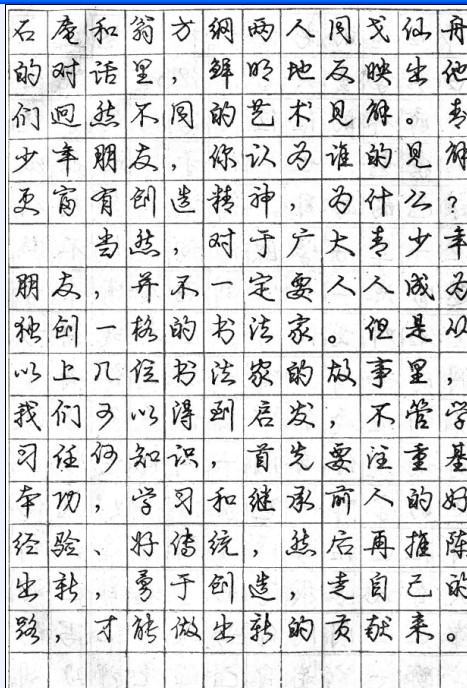 石庵和翁方纲两人同戈仙舟
的对话里，鲜明地反映出他
们迥然不同的艺术见解。青
少年朋友，你认为谁的见解
更富有创造精神，为什么？
当然，对于广大青少年
朋友，并不一定要人人成为
独创一格的书法家。但是从
以上几位书法家的故事里，
我们可以得到启发，不管学
习任何知识，首先要注重基
本功，学习和继承前人的好
经验、好传统，然后再推陈
出新，勇于创造，走自己的
路，才能做出新的贡献来。